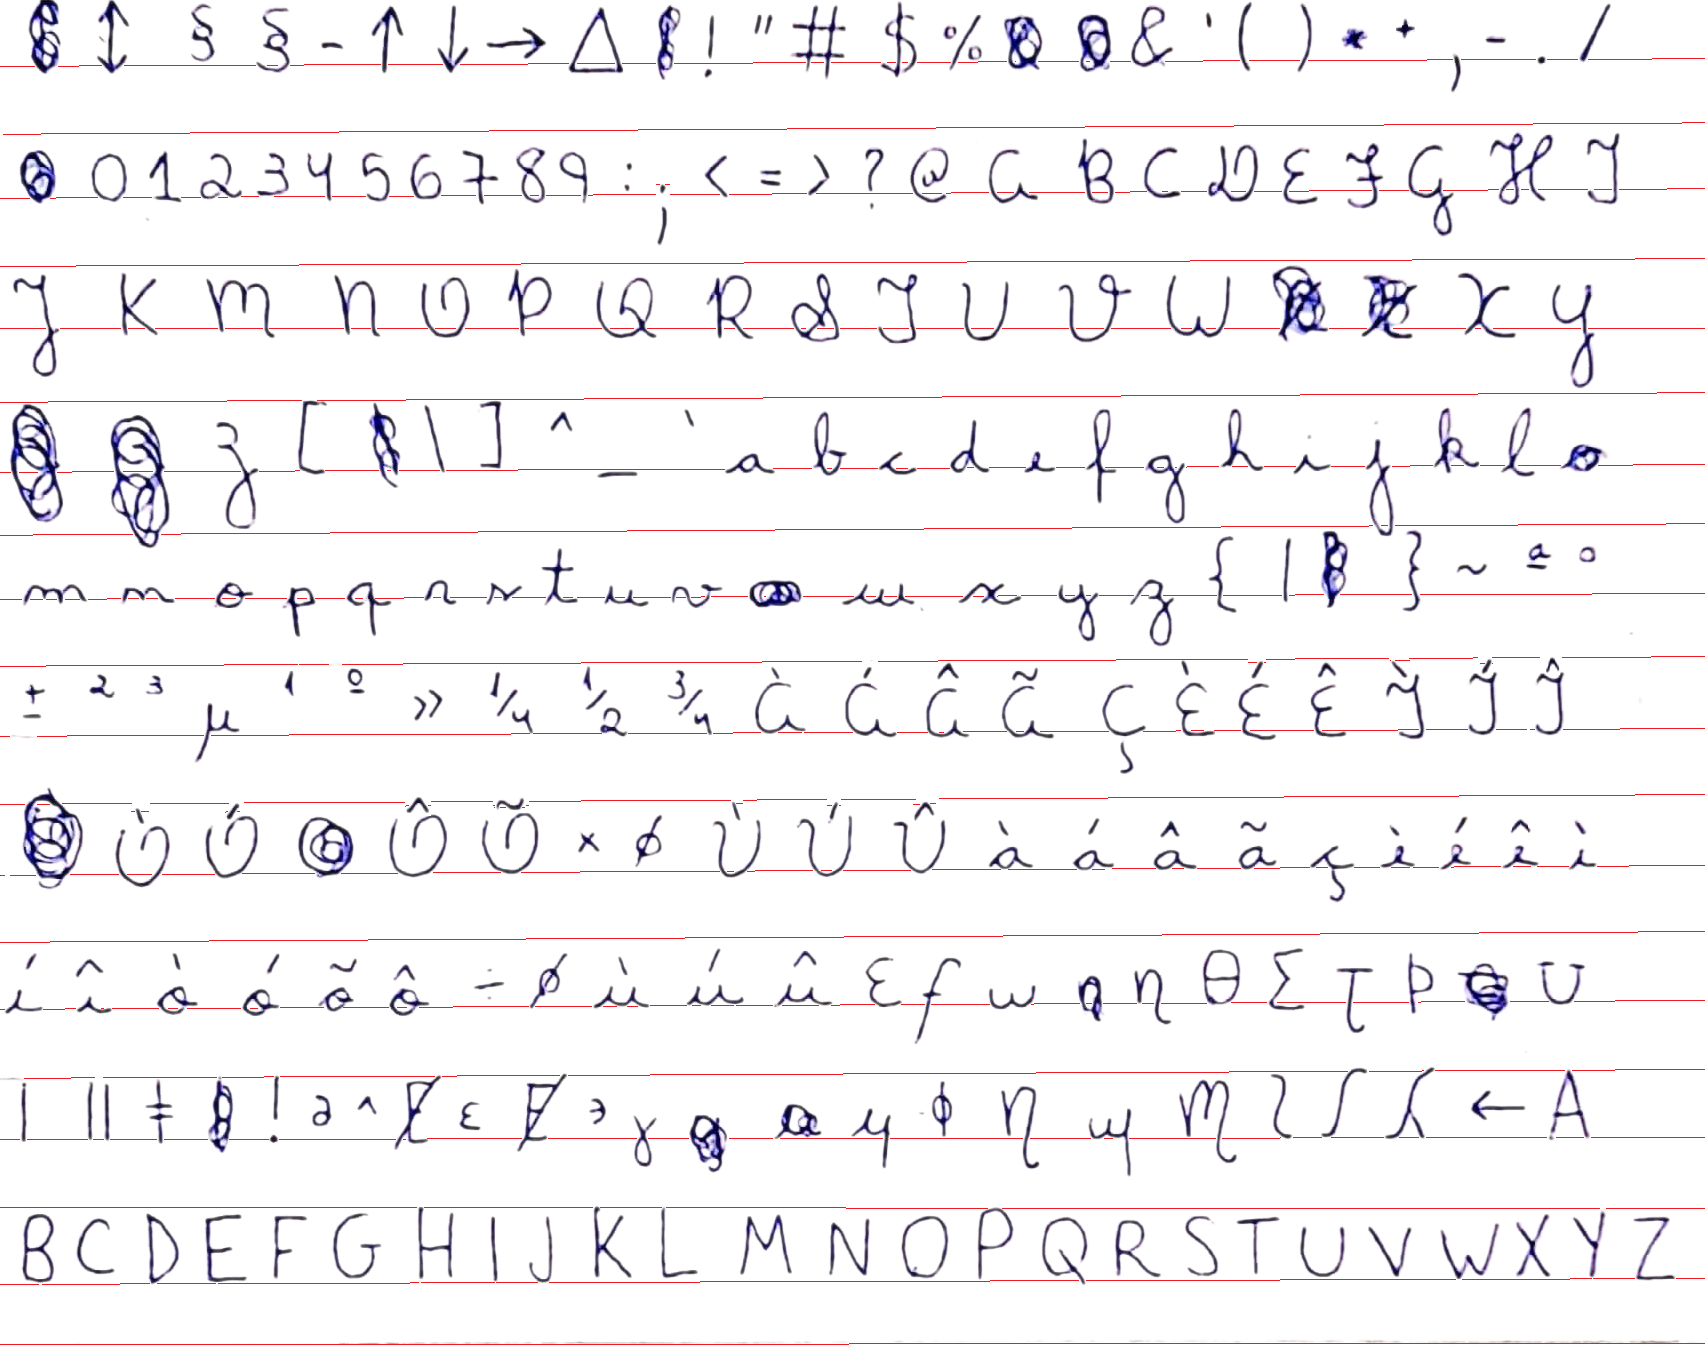 ↕ § § - ↑ ↓ → △ ! " # $ % & ' ( ) * + , - . /
0 1 2 3 4 5 6 7 8 9 : ; < = > ? @ A B C D E F G H I
J K M N O P Q R S T U V W X Y
Z [ \ ] ^ _ ` a b c d e f g h i j k l
m n o p q r s t u v w x y z { | } ~ ª °
± ² ³ µ ¹ º » ¼ ½ ¾ À Á Â Ã Ç È É Ê Ì Í Î
Ò Ó Ô Õ × ø Ù Ú Û à á â ã ç è é ê ì
í î ò ó õ ô ÷ ø ù ú û Ɛ ƒ ω η θ Σ Ʈ Þ Ʊ
| ǁ ǂ ! ə ^ ɛ ɣ ɥ ɸ ← A
B C D E F G H I J K L M N O P Q R S T U V W X Y Z